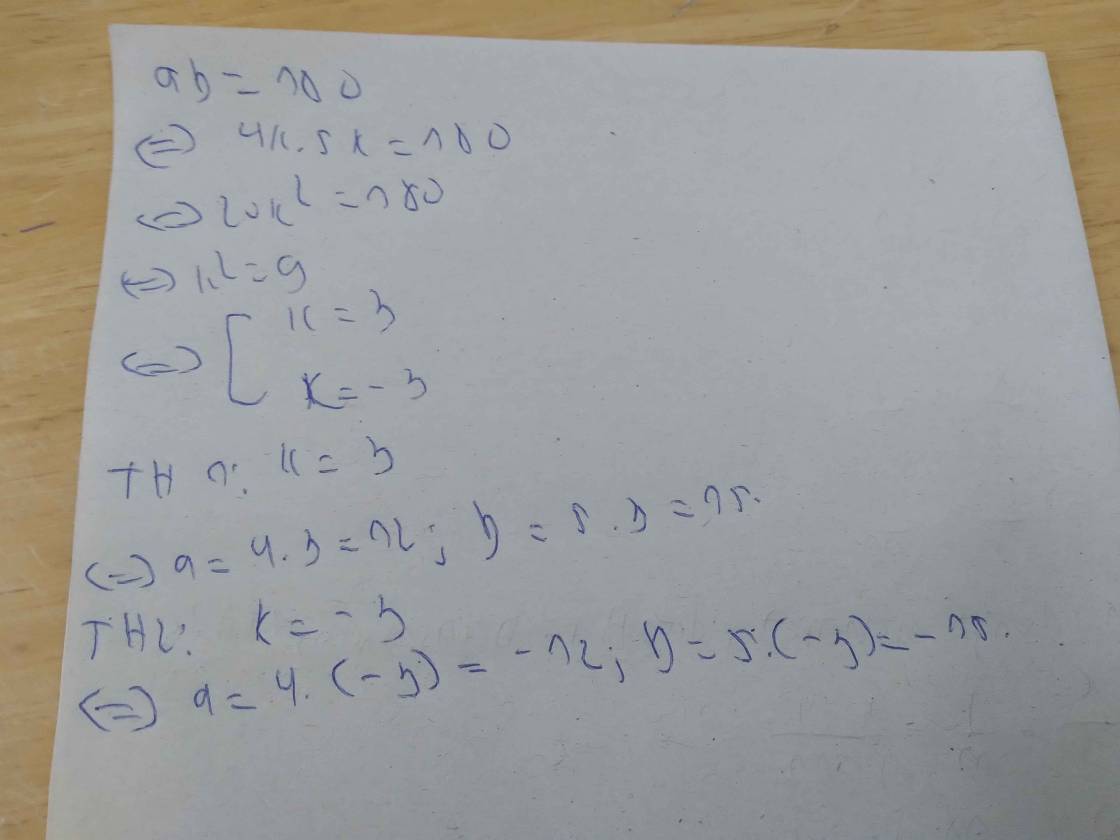 ab = 180
<=> 4k.5k = 180
<=> 20k² = 180
<=> k² = 9
<=> [ k = 3
k = -3
TH1: k = 3
<=> a = 4.3 = 12; b = 5.3 = 15.
TH2: k = -3
<=> a = 4.(-3) = -12; b = 5.(-3) = -15.